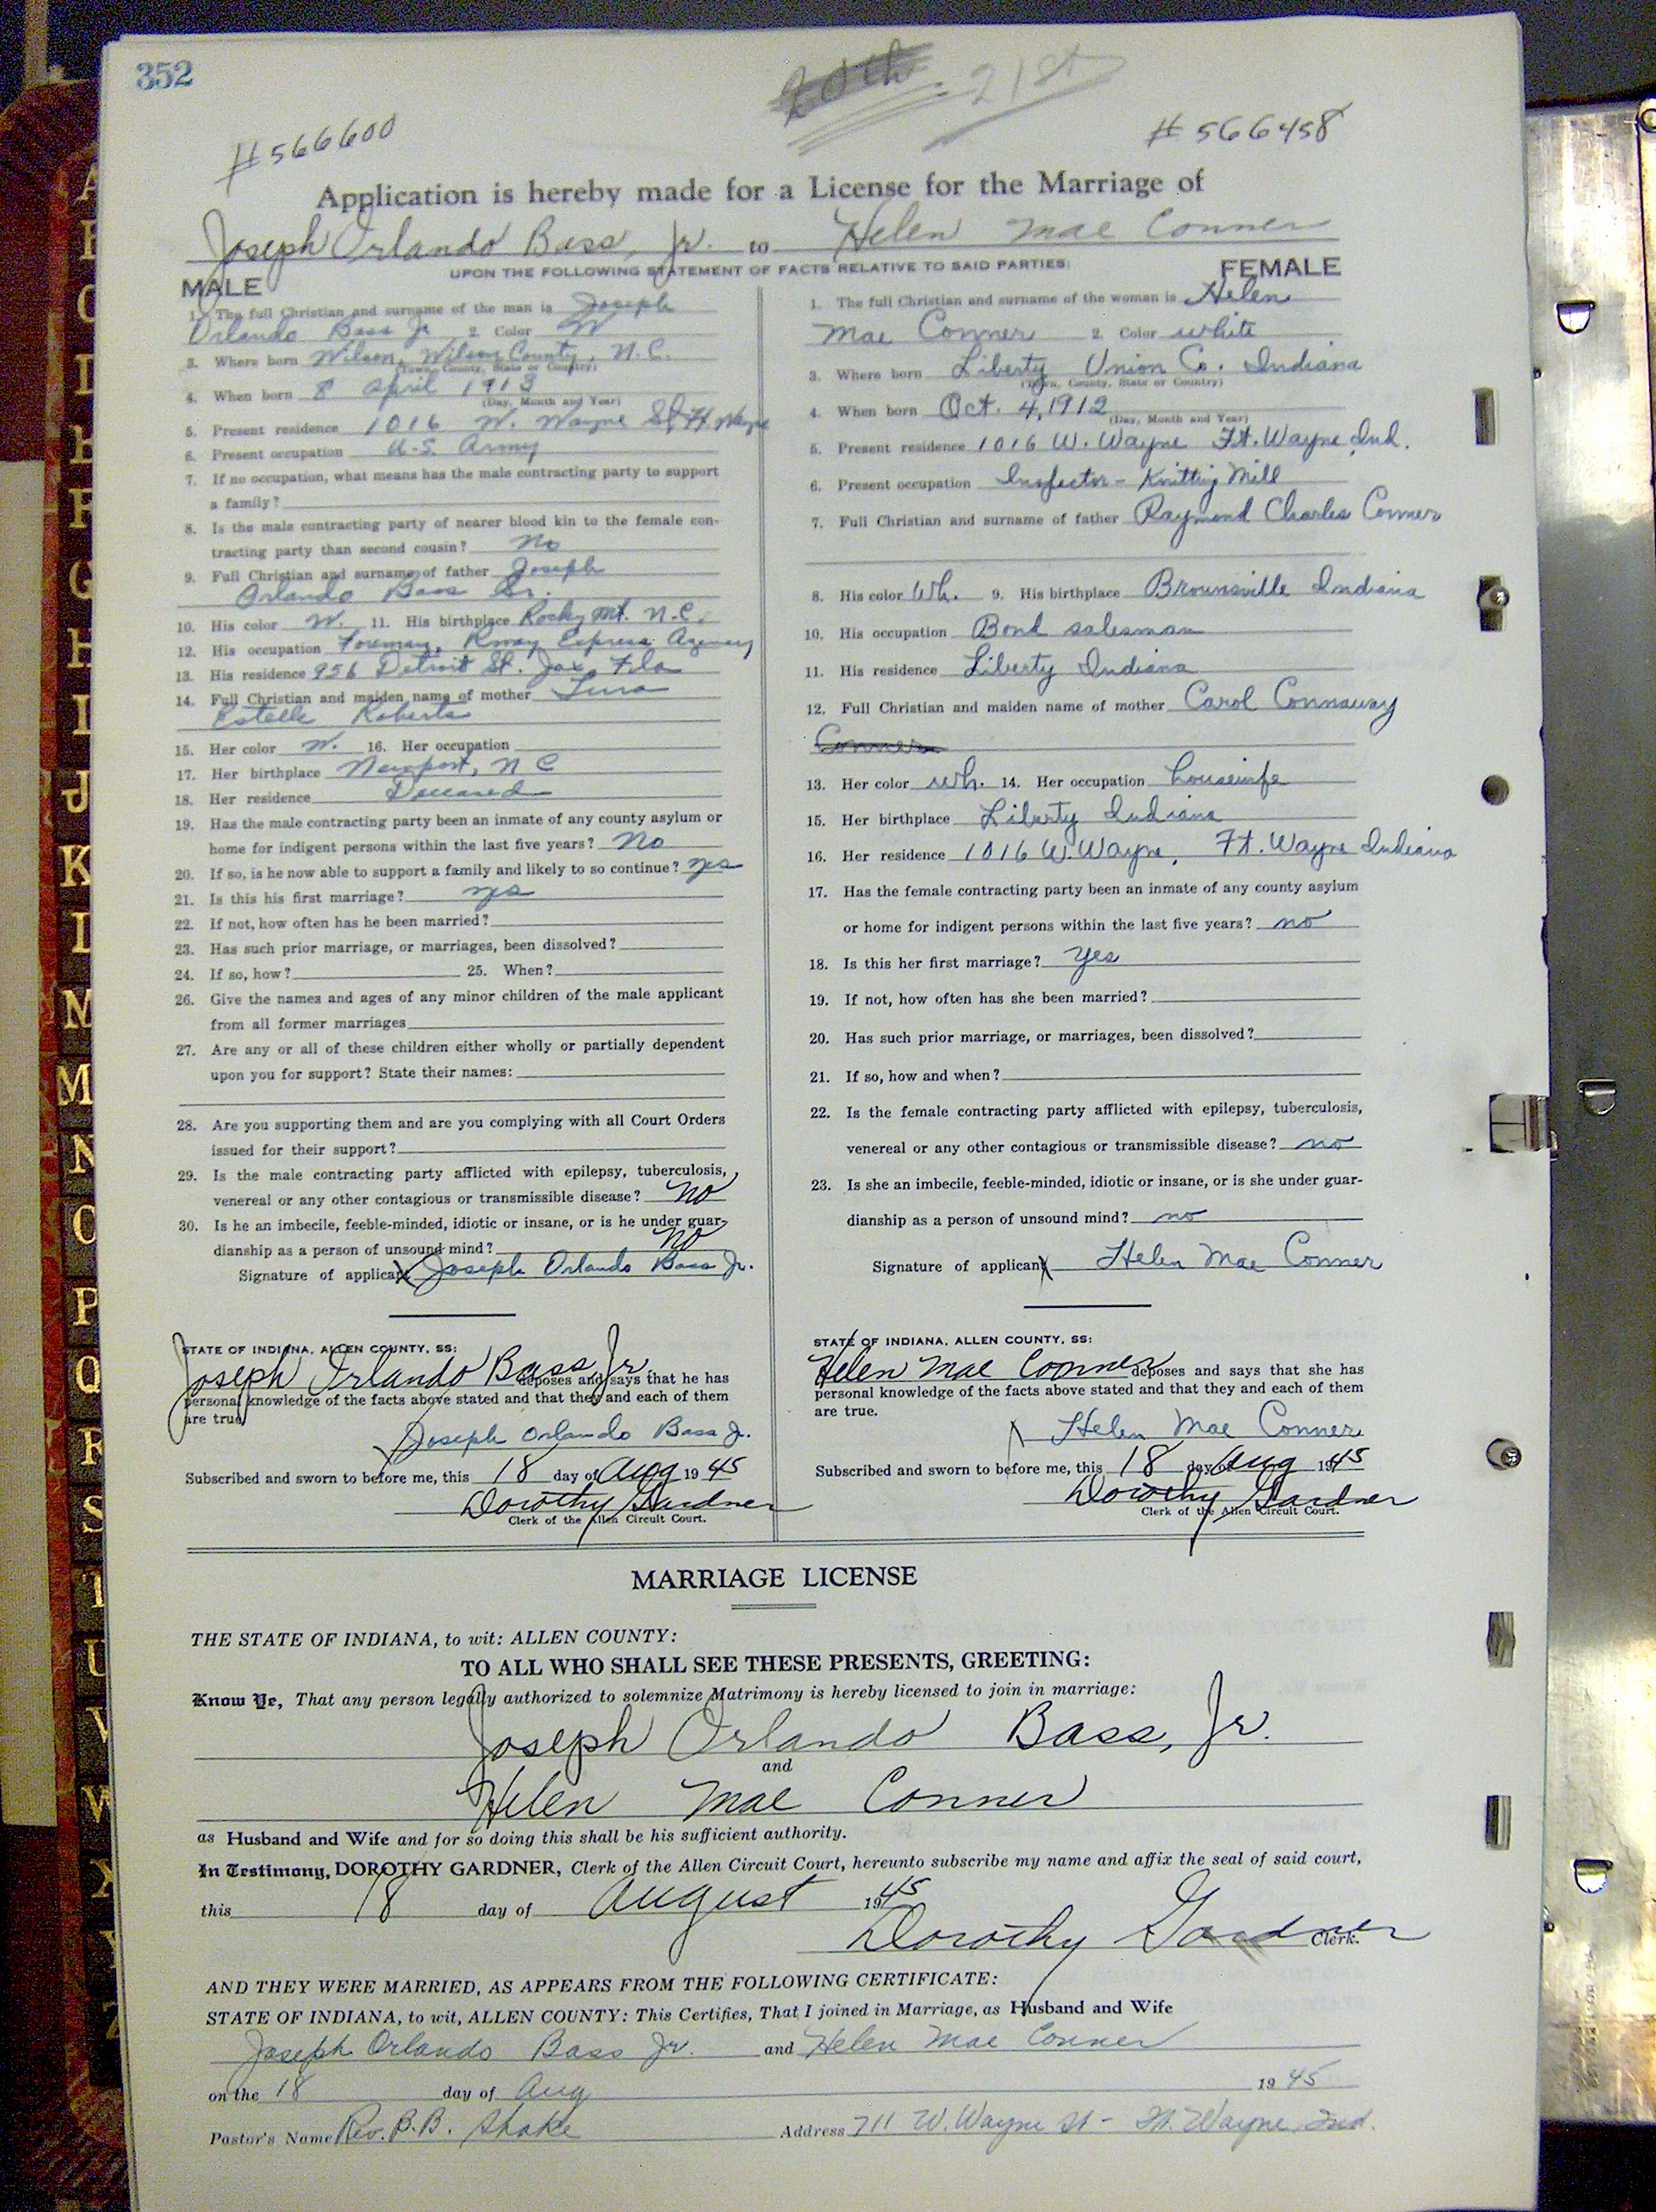 352
20th 21st
#566600
#566458
Application is hereby made for a License for the Marriage of
Joseph Orlando Bass, Jr. to Helen Mae Conner
UPON THE FOLLOWING STATEMENT OF FACTS RELATIVE TO SAID PARTIES:
MALE
1. The full Christian and surname of the man is Joseph
Orlando Bass Jr 2. Color W
3. Where born Wilson, Wilson County, N.C.
(Town, County, State or Country)
4. When born 8 April 1913
(Day, Month and Year)
5. Present residence 1016 W. Wayne St, Ft Wayne
6. Present occupation U.S. Army
7. If no occupation, what means has the male contracting party to support
a family?
8. Is the male contracting party of nearer blood kin to the female con-
tracting party than second cousin? No
9. Full Christian and surname of father Joseph
Orlando Bass Sr.
10. His color W. 11. His birthplace Rocky Mt. N.C.
12. His occupation Foreman, Rway Express Agency
13. His residence 956 Detroit St. Jax, Fla
14. Full Christian and maiden name of mother
Estelle Roberts
15. Her color W. 16. Her occupation
17. Her birthplace Newport, N C
18. Her residence Deceased
19. Has the male contracting party been an inmate of any county asylum or
home for indigent persons within the last five years? No
20. If so, is he now able to support a family and likely to so continue? yes
21. Is this his first marriage? yes
22. If not, how often has he been married?
23. Has such prior marriage, or marriages, been dissolved?
24. If so, how? 25. When?
26. Give the names and ages of any minor children of the male applicant
from all former marriages
27. Are any or all of these children either wholly or partially dependent
upon you for support? State their names:
28. Are you supporting them and are you complying with all Court Orders
issued for their support?
29. Is the male contracting party afflicted with epilepsy, tuberculosis,
venereal or any other contagious or transmissible disease? no
30. Is he an imbecile, feeble-minded, idiotic or insane, or is he under guar-
dianship as a person of unsound mind? no
Signature of applicant X Joseph Orlando Bass Jr.
STATE OF INDIANA, ALLEN COUNTY, SS:
Joseph Orlando Bass Jr. deposes and says that he has
personal knowledge of the facts above stated and that they and each of them
are true.
X Joseph Orlando Bass Jr.
Subscribed and sworn to before me, this 18 day of Aug 1945
Dorothy Gardner
Clerk of the Allen Circuit Court.
FEMALE
1. The full Christian and surname of the woman is Helen
Mae Conner 2. Color white
3. Where born Liberty Union Co. Indiana
(Town, County, State or Country)
4. When born Oct. 4, 1912
(Day, Month and Year)
5. Present residence 1016 W. Wayne Ft. Wayne, Ind.
6. Present occupation Inspector - Knitting Mill
7. Full Christian and surname of father Raymond Charles Conner
8. His color Wh. 9. His birthplace Brownsville Indiana
10. His occupation Bond salesman
11. His residence Liberty Indiana
12. Full Christian and maiden name of mother Carol Connaway
Conner
13. Her color wh. 14. Her occupation housewife
15. Her birthplace Liberty Indiana
16. Her residence 1016 W. Wayne, Ft. Wayne Indiana
17. Has the female contracting party been an inmate of any county asylum
or home for indigent persons within the last five years? no
18. Is this her first marriage? yes
19. If not, how often has she been married?
20. Has such prior marriage, or marriages, been dissolved?
21. If so, how and when?
22. Is the female contracting party afflicted with epilepsy, tuberculosis,
venereal or any other contagious or transmissible disease? no
23. Is she an imbecile, feeble-minded, idiotic or insane, or is she under guar-
dianship as a person of unsound mind? no
Signature of applicant X Helen Mae Conner
STATE OF INDIANA, ALLEN COUNTY, SS:
Helen Mae Conner deposes and says that she has
personal knowledge of the facts above stated and that they and each of them
are true.
X Helen Mae Conner
Subscribed and sworn to before me, this 18 day of Aug 1945
Dorothy Gardner
Clerk of the Allen Circuit Court.
MARRIAGE LICENSE
THE STATE OF INDIANA, to wit: ALLEN COUNTY:
TO ALL WHO SHALL SEE THESE PRESENTS, GREETING:
Know Ye, That any person legally authorized to solemnize Matrimony is hereby licensed to join in marriage:
Joseph Orlando Bass, Jr.
and
Helen Mae Conner
as Husband and Wife and for so doing this shall be his sufficient authority.
In Testimony, DOROTHY GARDNER, Clerk of the Allen Circuit Court, hereunto subscribe my name and affix the seal of said court,
this 18 day of August 1945
Dorothy Gardner Clerk.
AND THEY WERE MARRIED, AS APPEARS FROM THE FOLLOWING CERTIFICATE:
STATE OF INDIANA, to wit, ALLEN COUNTY: This Certifies, That I joined in Marriage, as Husband and Wife
Joseph Orlando Bass Jr. and Helen Mae Conner
on the 18 day of Aug 1945
Pastor's Name Rev. B.B. Shake Address 711 W. Wayne St - Ft. Wayne, Ind.